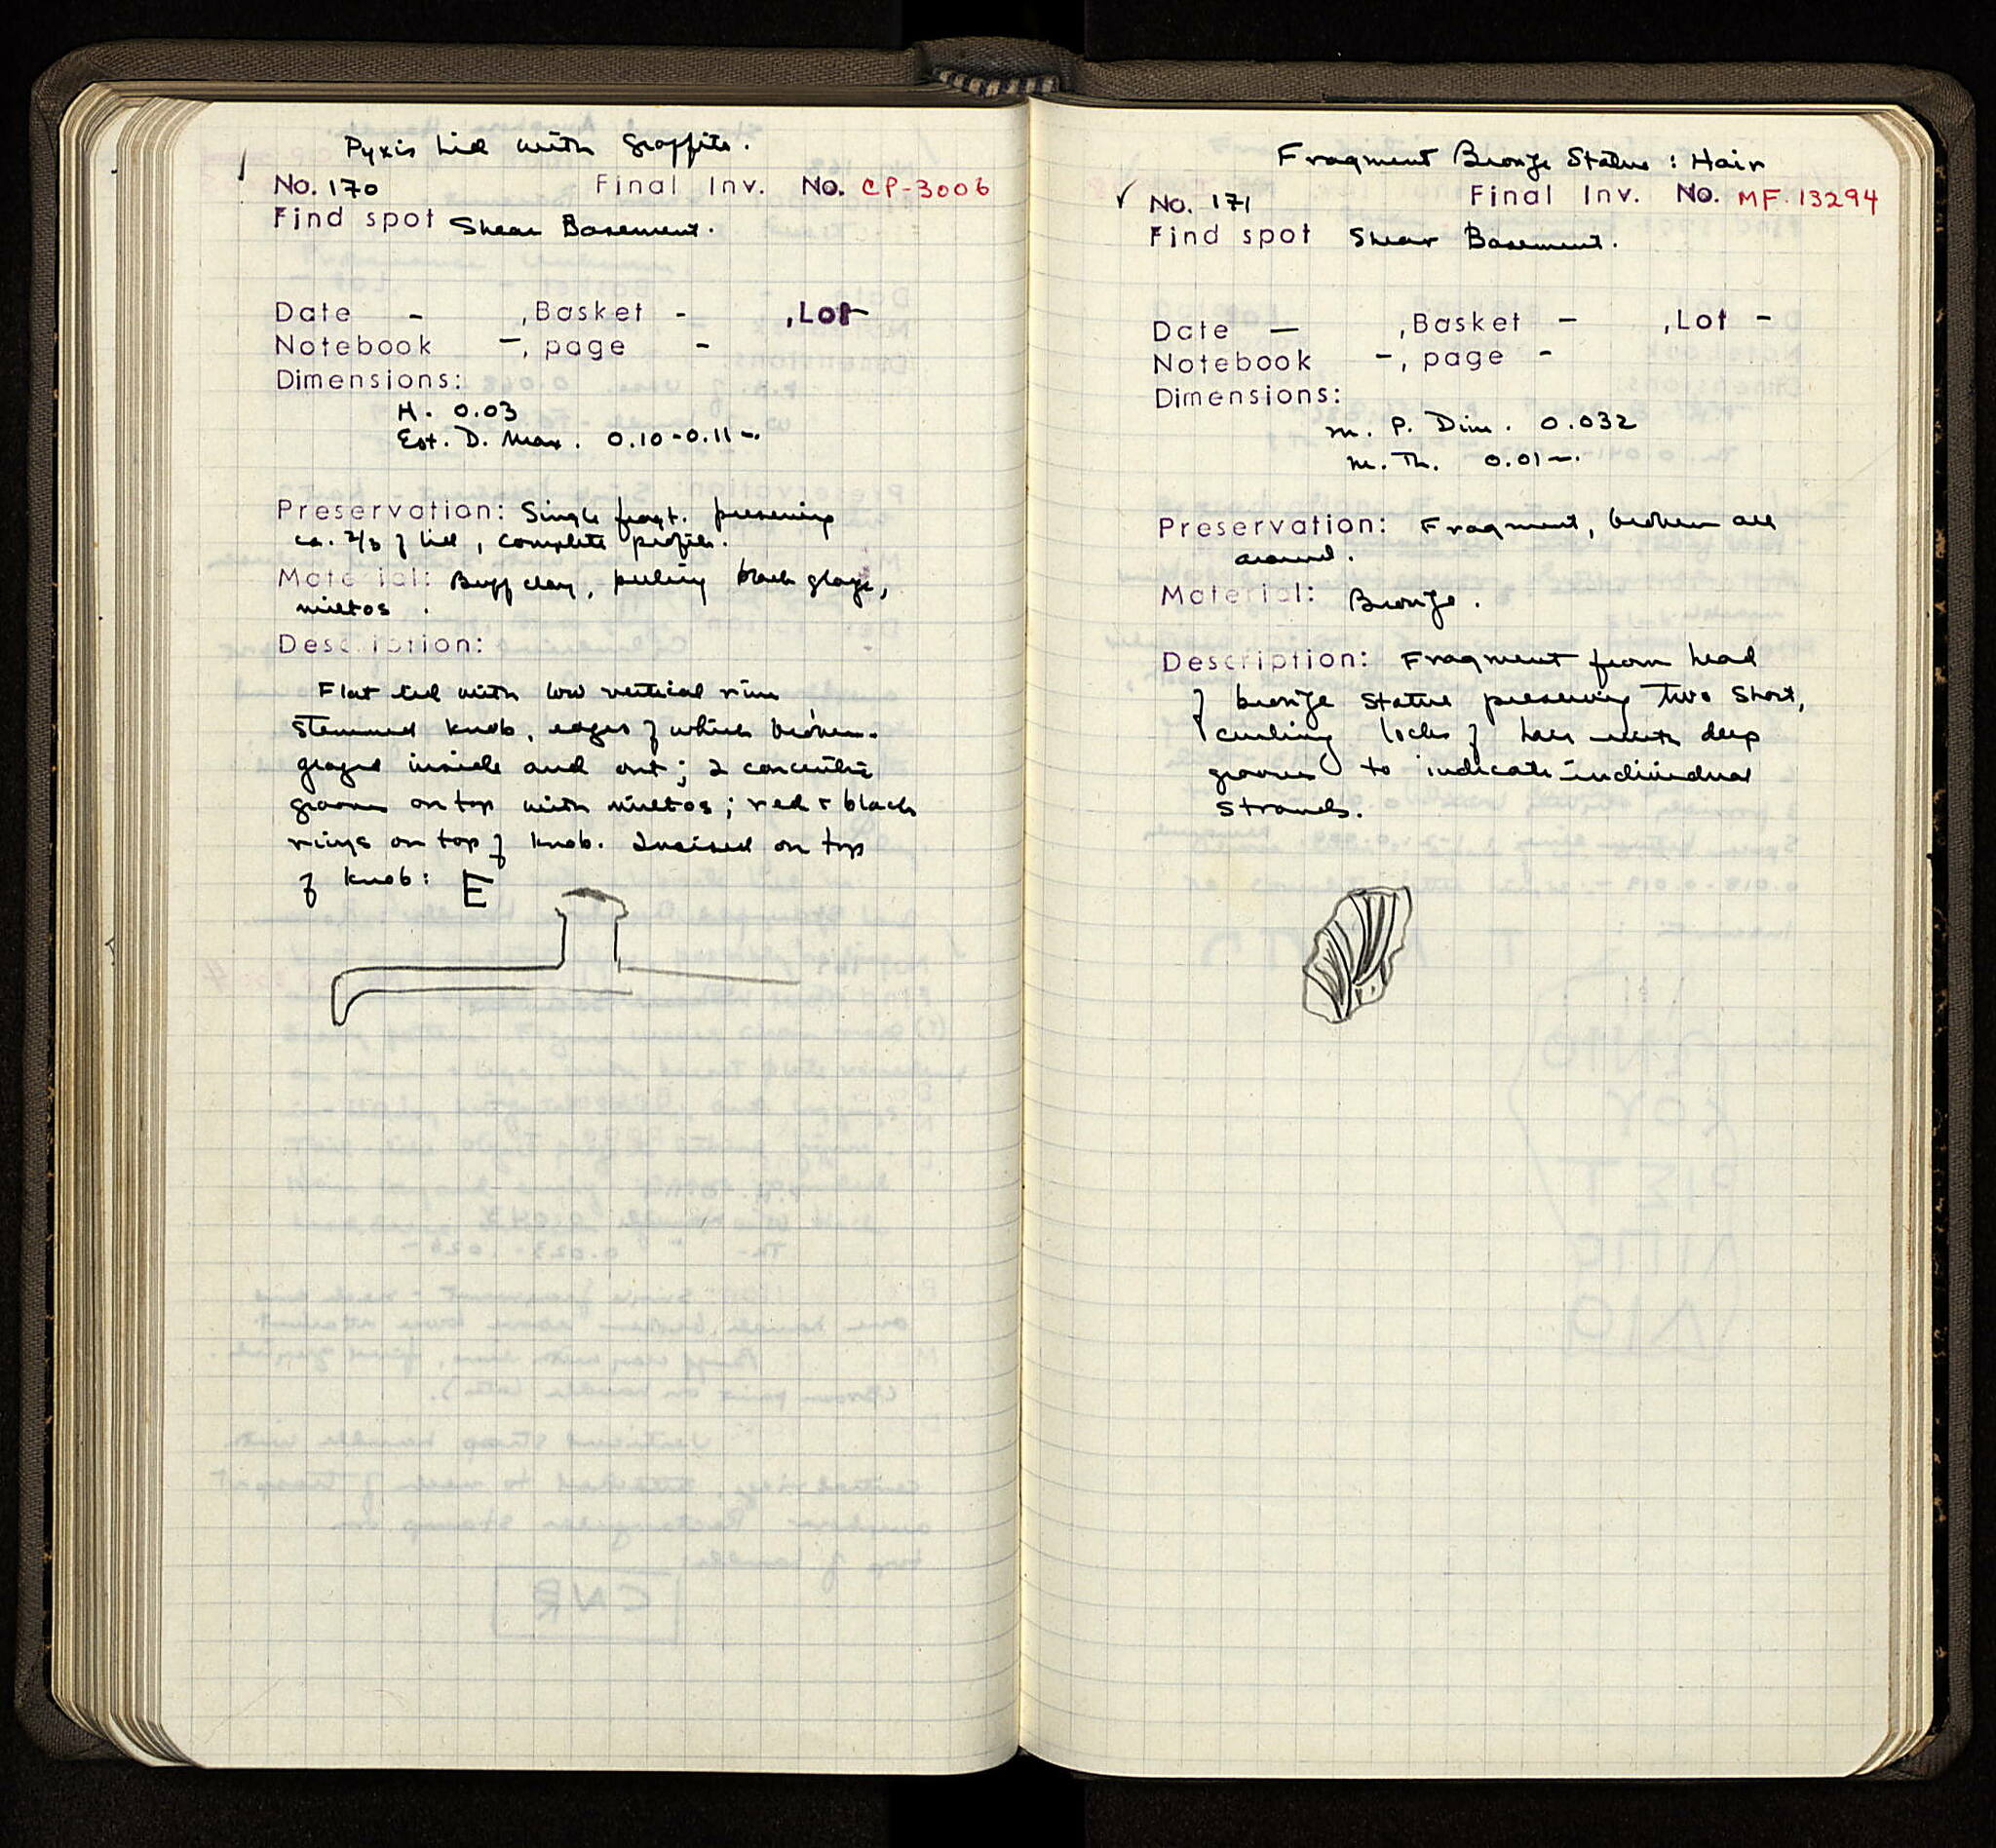 Pyxis Lid with Graffito.
No. 170 Final Inv. No. CP-3006
Find spot Shear Basement.
Date - , Basket - , Lot -
Notebook -, page -
Dimensions:
H. 0.03
Est. D. Max. 0.10-0.11 -.
Preservation: Single fragt. preserving
ca. 2/3 of lid, complete profile.
Material: Buff clay, peeling black glaze,
miltos.
Description:
Flat lid with low vertical rim
stemmed knob, edges of which broken.
glazed inside and out; 2 concentric
grooves on top with miltos; red + black
rings on top of knob. Incised on top
of knob: E
Fragment Bronze Statue: Hair
✓ No. 171 Final Inv. No. MF.13294
Find spot Shear Basement.
Date — , Basket - , Lot -
Notebook -, page -
Dimensions:
m. P. Dim. 0.032
m. Th. 0.01 -.
Preservation: Fragment, broken all
around.
Material: Bronze.
Description: Fragment from head
of bronze statue preserving two short,
curling locks of hair with deep
grooves to indicate individual
strands.